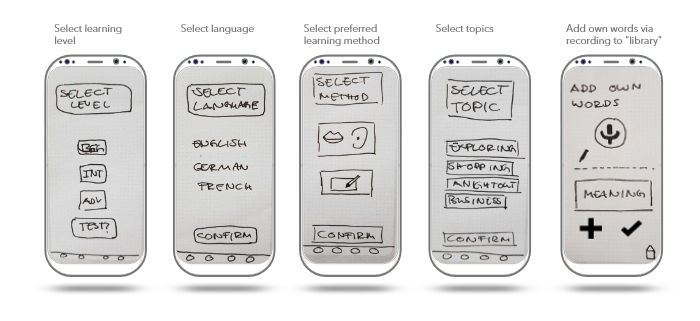 Select learning
level
SELECT
LEVEL
BEG
INT
ADV
TEST?
Select language
SELECT
LANGUAGE
ENGLISH
GERMAN
FRENCH
CONFIRM
Select preferred
learning method
SELECT
METHOD
CONFIRM
Select topics
SELECT
TOPIC
EXPLORING
SHOPPING
A NIGHT OUT
BUSINESS
CONFIRM
Add own words via
recording to "library"
ADD OWN
WORDS
MEANING